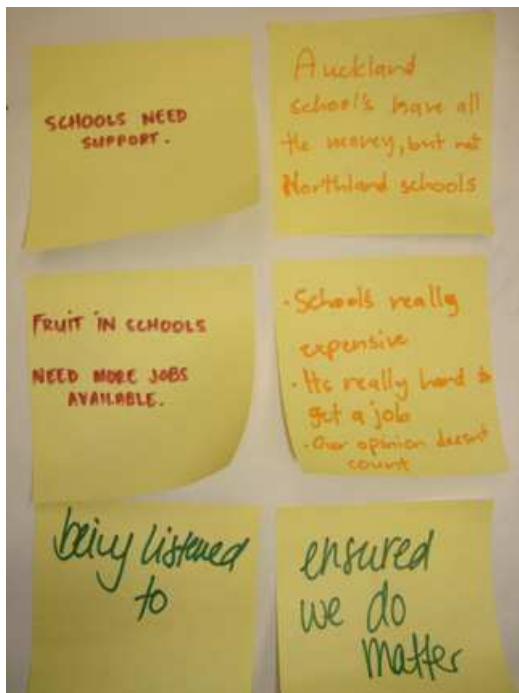 SCHOOLS NEED
SUPPORT.
Auckland
school's have all
the money, but not
Northland schools
FRUIT IN SCHOOLS
NEED MORE JOBS
AVAILABLE.
· Schools really
expensive
· Its really hard to
get a job
· Our opinion doesn't
count
being listened
to
ensured
we do
matter